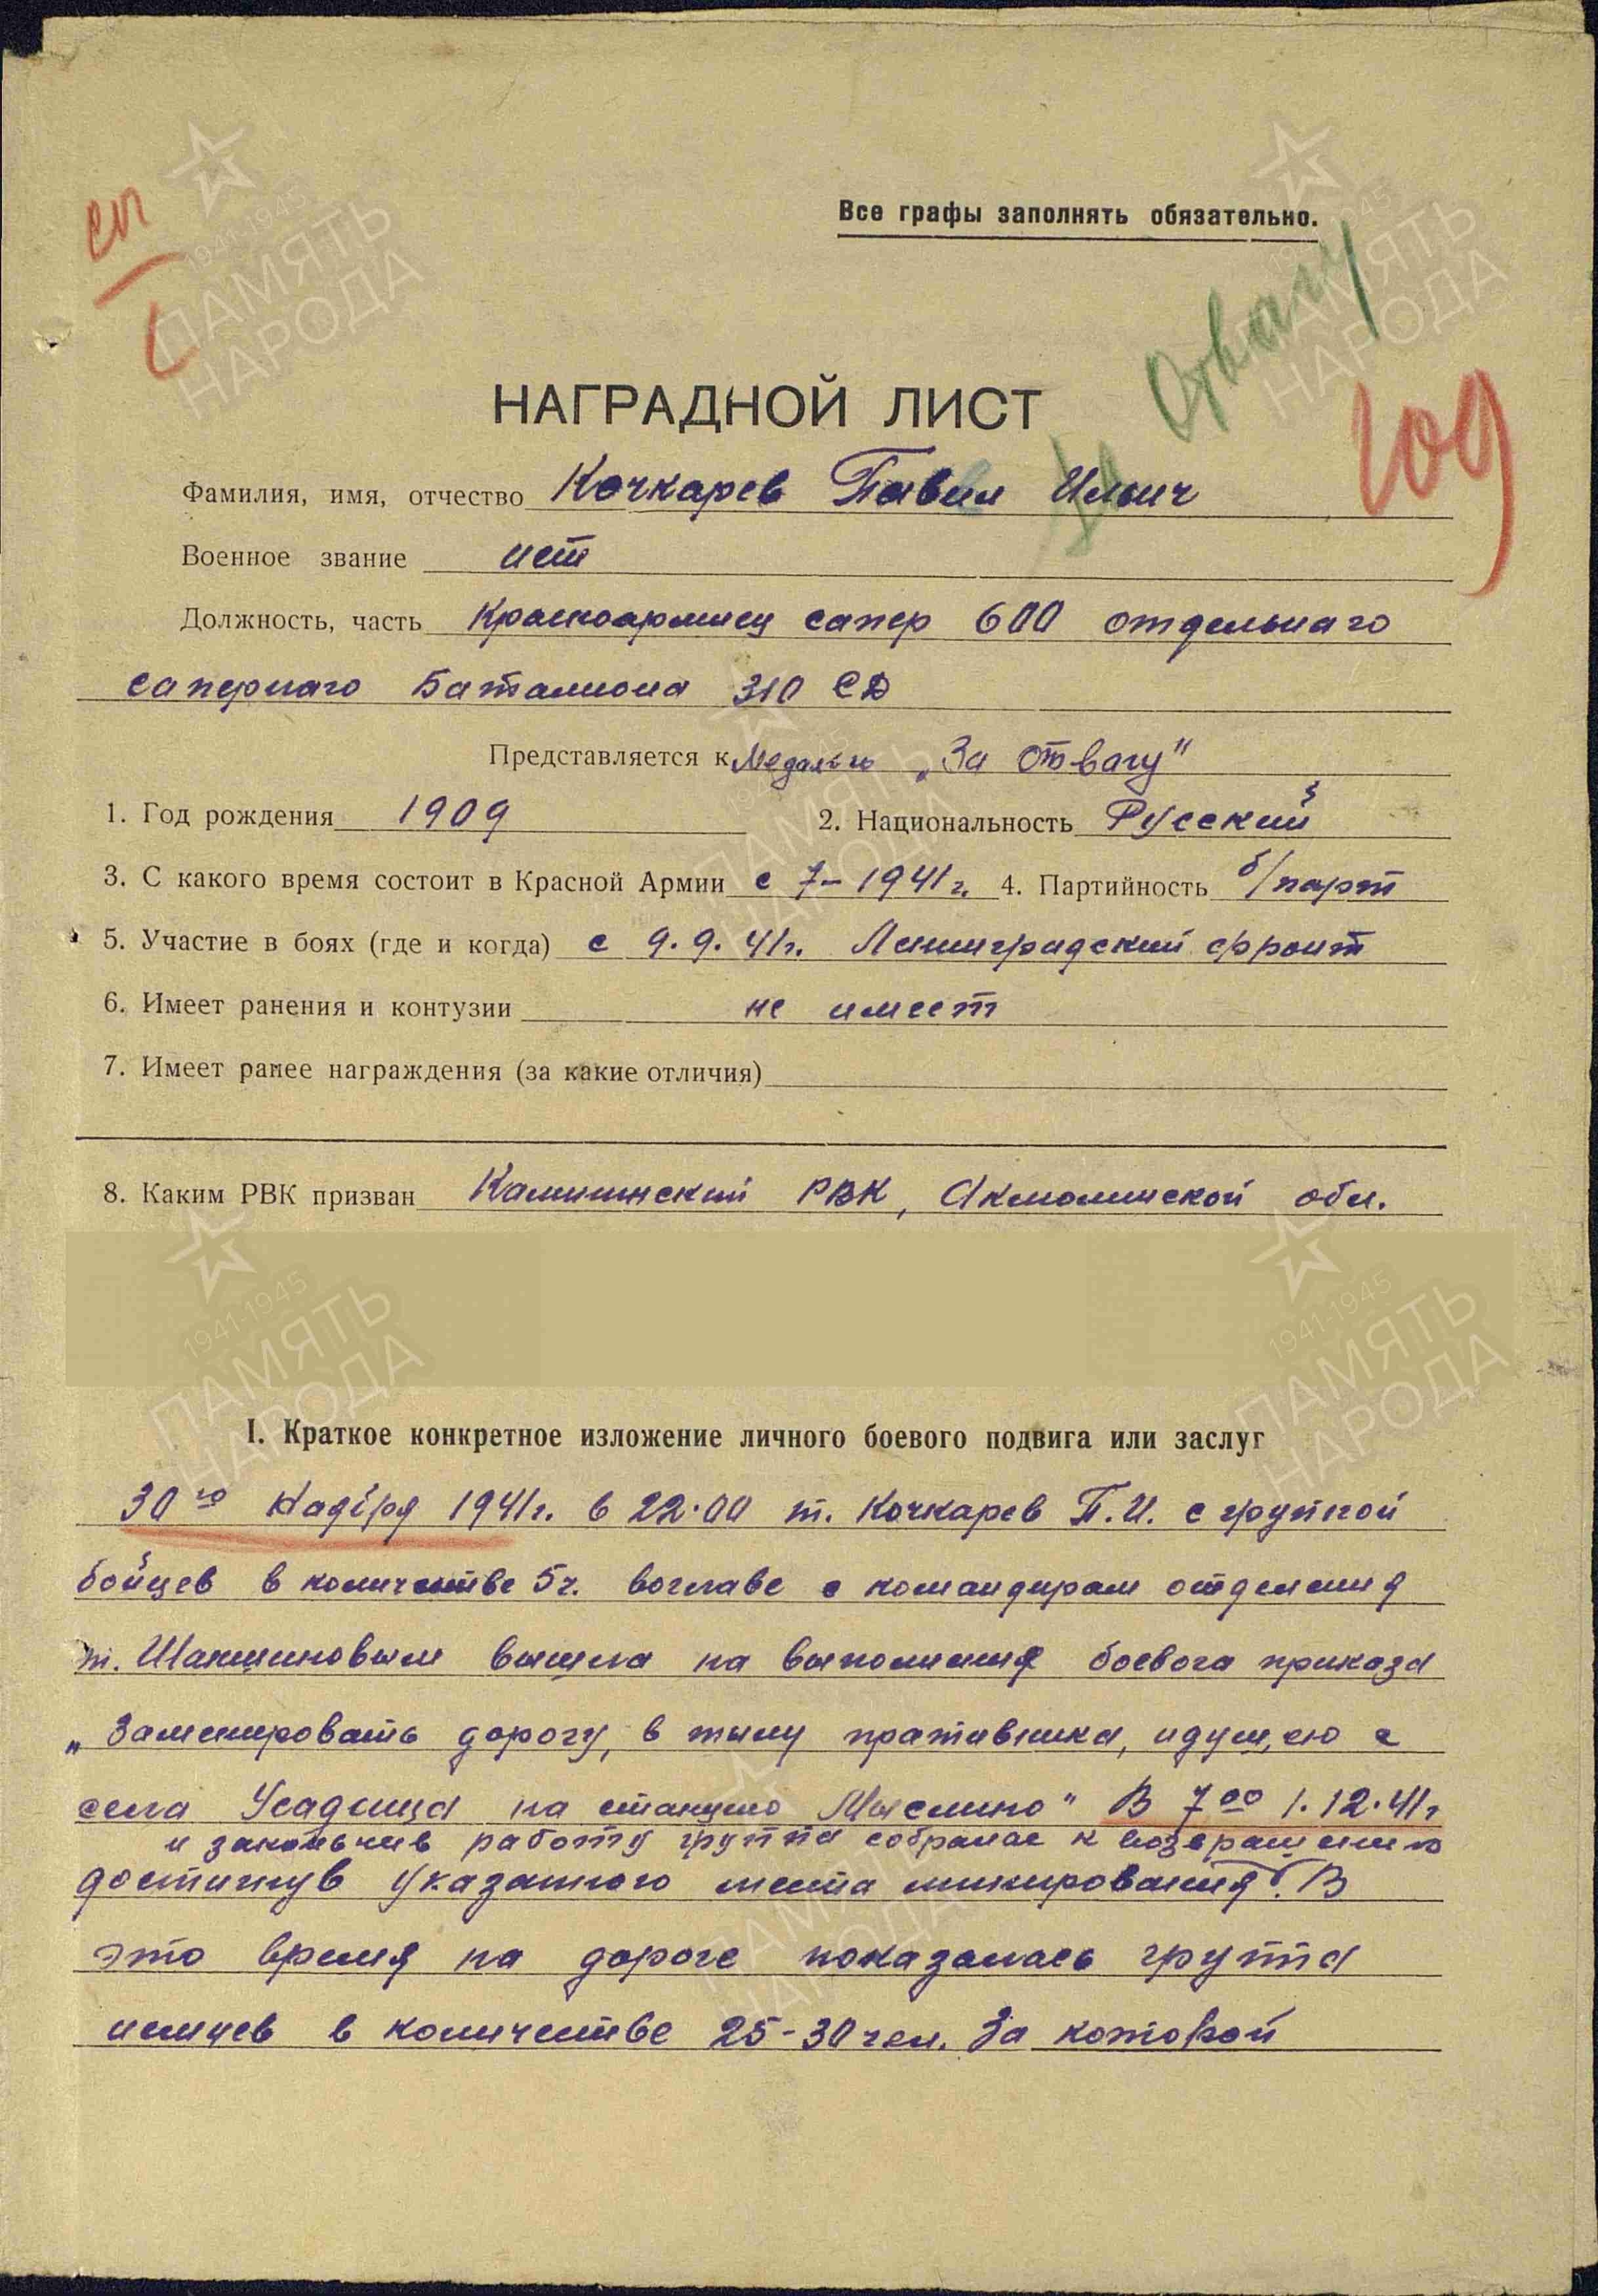 Все графы заполнять обязательно.
За Отвагу
109
НАГРАДНОЙ ЛИСТ
Фамилия, имя, отчество Кочкарев Павел Ильич
Военное звание нет
Должность, часть Красноармиец сапер 600 отдельнаго
сапернаго Баталиона 310 СД
Представляется к Медалью „За Отвагу"
1. Год рождения 1909 2. Национальность Русский
3. С какого время состоит в Красной Армии с 7-1941г. 4. Партийность б/парт
5. Участие в боях (где и когда) с 9.9.41г. Ленинградский фронт
6. Имеет ранения и контузии не имеет
7. Имеет ранее награждения (за какие отличия)
8. Каким РВК призван Калининский РВК, Акмолинской обл.
I. Краткое конкретное изложение личного боевого подвига или заслуг
30го Надбря 1941г. в 22.00 т. Кочкарев П.И. с групой
бойцев в количестве 5ч. воглаве с командирам отделения
т. вышла на выполнения боевога приказа
„Заменировать дорогу, в тылу пративника, идущею с
села Усадища на станцию Мыслино" В 7 00 1.12.41г
и законьчив работу группа собралас к возвращению
достигнув указанного места минирования. В
это время на дороге показалась группа
немцев в количестве 25-30 чел. За которой
1941-1945
ПАМЯТЬ
НАРОДА